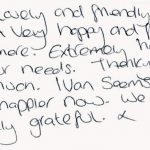 lovely and friendly
very happy and
more. Extremely
our needs. Thank
much. Ivan seems
happier now. We
grateful. x